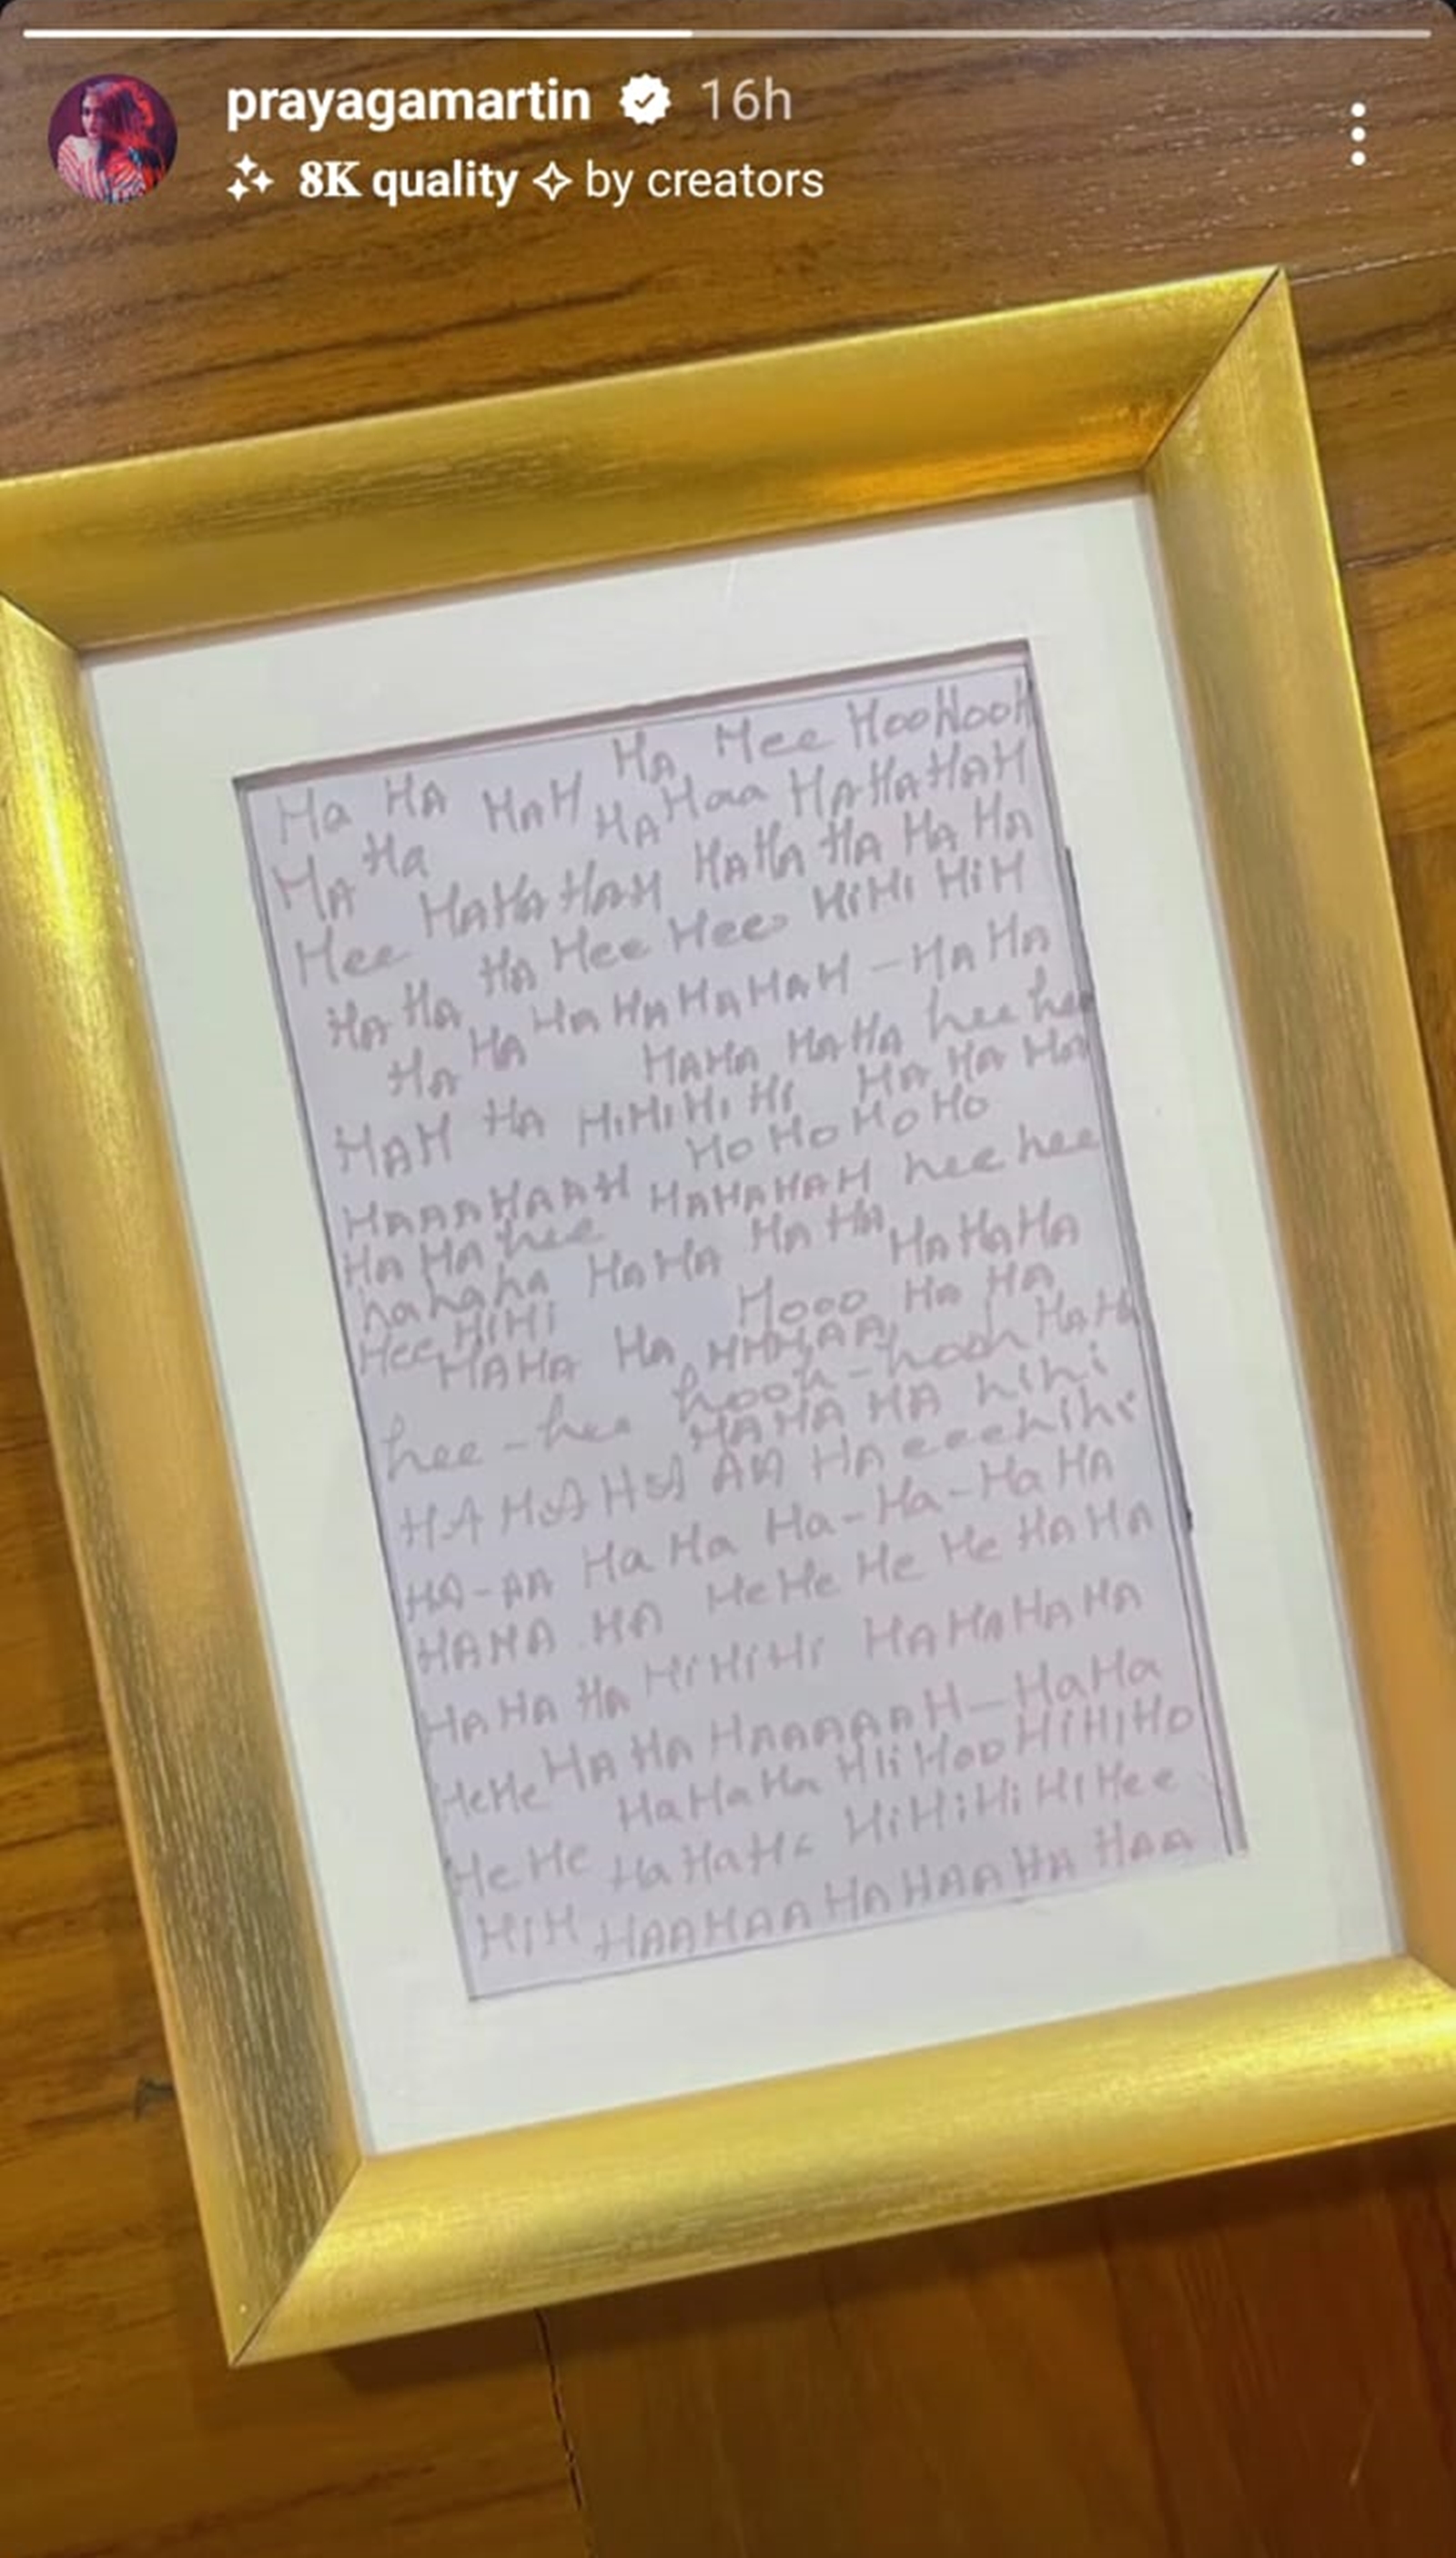 prayagamartin 16h
8K quality by creators
Ha HA HAH HA Hee HooHooH
HA Ha HA Haa HAHAHAH
Hee HAHAHAH HAHA HA HA HA
HA HA HA Hee Hee HiHi HiH
HA HA HA HA HA HAH – HA HA
HAH HA HAHA HAHA hee hee
HiHiHi Hi HA HA HA
HAAAHAAH HO HO HO HO
HA HA hee HAHAHAH hee hee
hahaha HAHA HA HA HAHAHA
Hee HiHi Hooo HA HA
HAHA HA HHHAA
hee-hee hooh-hooh HaHa
HAHA HA hihi
HA HA HA AA HA eeehihi
HA-AA Ha Ha Ha-Ha-Ha HA
HAHA HA HeHe He He HAHA
HAHA HA HiHiHi HAHAHAHA
HeHe HA HA HAAAAAH – HaHa
HeHe HaHaHa Hii Hoo HiHiHo
HaHaHa HiHiHiHiHee
HiH HAAHAA HA HAA HA HAA